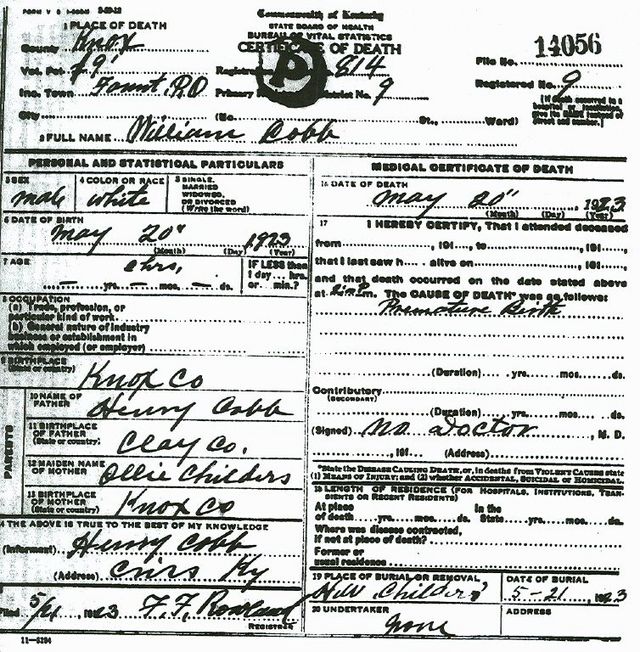 Commonwealth of Kentucky
STATE BOARD OF HEALTH
BUREAU OF VITAL STATISTICS
CERTIFICATE OF DEATH
1 PLACE OF DEATH
County Knox
Vot. Pct. 9
Inc. Town Fount P.O
City (No. St., Ward)
Registration 814
Primary District No. 9
P
File No. 14056
Registered No. 9
[If death occurred in a hospital or institution give its NAME instead of street and number.]
2 FULL NAME William Cobb
PERSONAL AND STATISTICAL PARTICULARS
3 SEX male
4 COLOR OR RACE white
5 SINGLE, MARRIED WIDOWED, OR DIVORCED (Write the word)
6 DATE OF BIRTH
May 20" 1923
(Month) (Day) (Year)
7 AGE hrs.
yrs. mos. ds.
IF LESS than 1 day hrs. or min.?
8 OCCUPATION
(a) Trade, profession, or particular kind of work
(b) General nature of industry
business or establishment in
which employed (or employer)
9 BIRTHPLACE (State or country) Knox Co
PARENTS
10 NAME OF FATHER Henry Cobb
11 BIRTHPLACE OF FATHER (State or country) Clay Co.
12 MAIDEN NAME OF MOTHER Ollie Childers
13 BIRTHPLACE OF MOTHER (State or country) Knox Co
14 THE ABOVE IS TRUE TO THE BEST OF MY KNOWLEDGE
(Informant) Henry Cobb
(Address) Ky
Filed 5/21 1923 F. F. Rowland
REGISTRAR
11-3184
MEDICAL CERTIFICATE OF DEATH
16 DATE OF DEATH
May 20" 1923
(Month) (Day) (Year)
17 I HEREBY CERTIFY, That I attended deceased
from , 191 , to , 191 ,
that I last saw h alive on , 191 ,
and that death occurred on the date stated above
at m. The CAUSE OF DEATH* was as follows:
Premature Birth
(Duration) yrs. mos. ds.
Contributory
(SECONDARY)
(Duration) yrs. mos. ds.
(Signed) No Doctor, M. D.
, 191 (Address)
*State the DISEASE CAUSING DEATH, or, in deaths from VIOLENT CAUSES state
(1) MEANS OF INJURY; and (2) whether ACCIDENTAL, SUICIDAL or HOMICIDAL.
18 LENGTH OF RESIDENCE (FOR HOSPITALS, INSTITUTIONS, TRANSIENTS OR RECENT RESIDENTS)
At place of death yrs. mos. ds. In the State yrs. mos. ds.
Where was disease contracted,
if not at place of death?
Former or
usual residence
19 PLACE OF BURIAL OR REMOVAL Childers
DATE OF BURIAL 5-21, 1923
20 UNDERTAKER none
ADDRESS